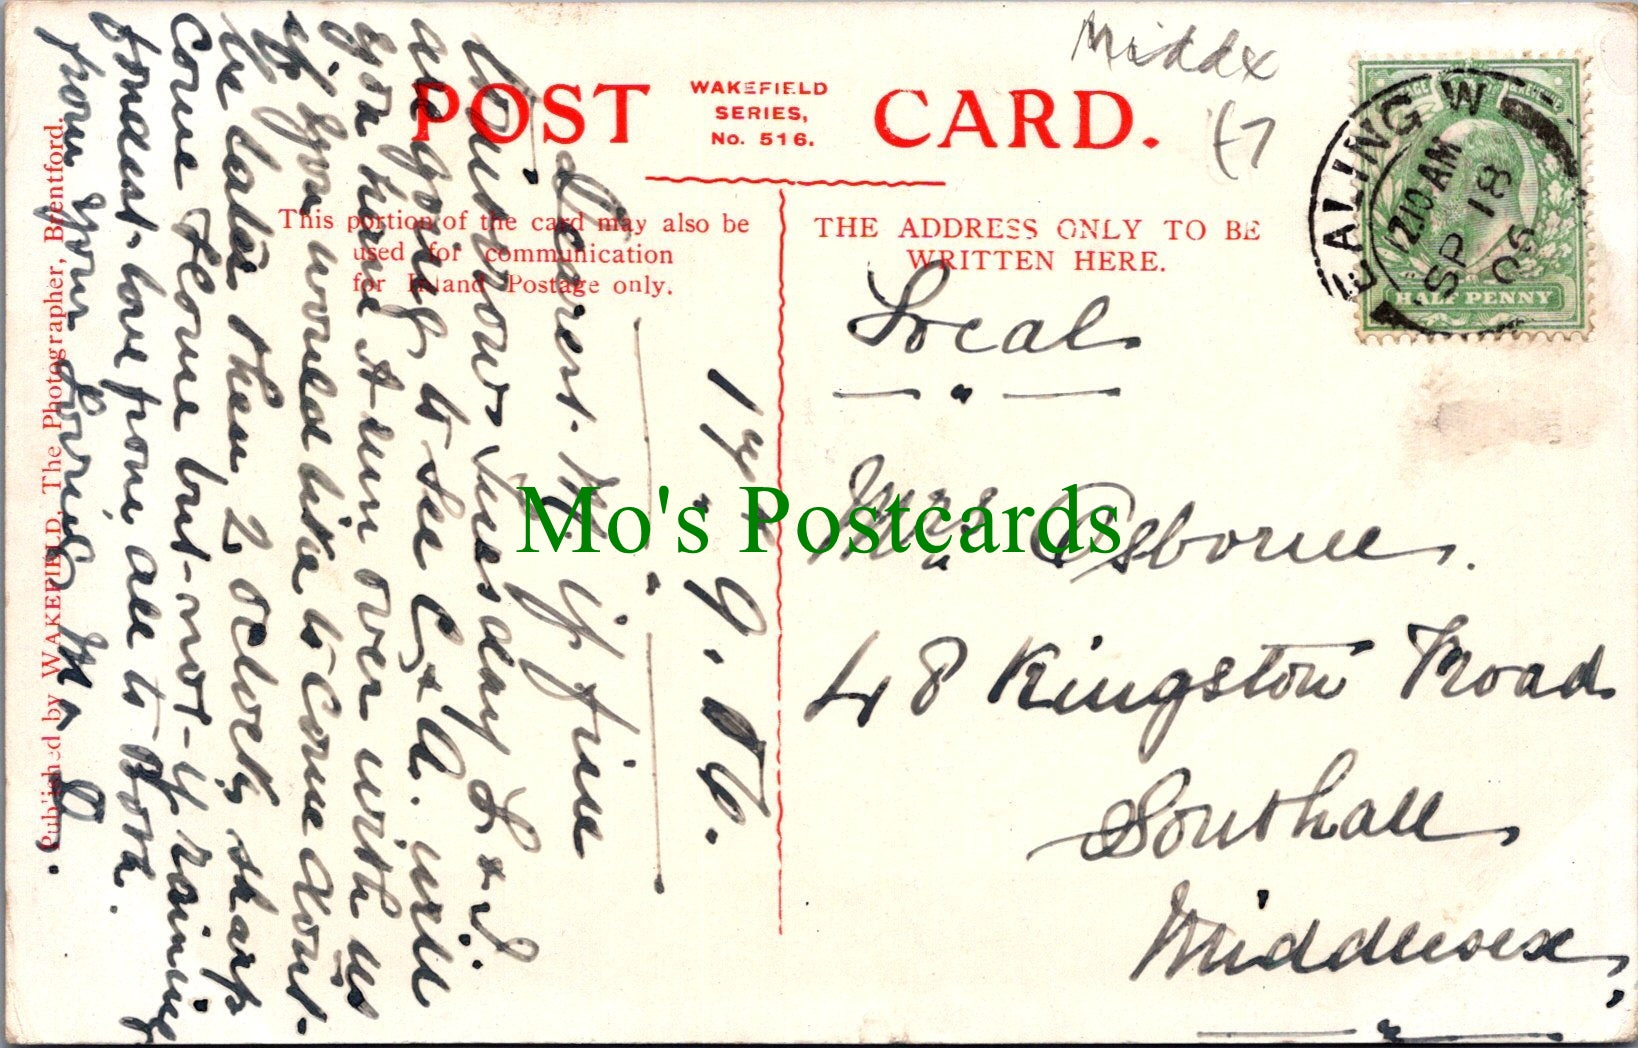 Middx
£7
POST CARD.
WAKEFIELD
SERIES,
No. 516.
This portion of the card may also be
used for communication
for Inland Postage only.
THE ADDRESS ONLY TO BE
WRITTEN HERE.
EALING W
12.10 AM
SP 18
06
HALF PENNY
Local
Mrs Osborne.
48 Kingston Road
Southall
Middlesex
17.9.06.
Dearest M. if fine
tomorrow Tuesday L & J.
are going to see C & A. will
you have A run over with us
if you would like to come dont
be later then 2, oclock, sharp
come home but not if raining
fondest love from all to both.
from your loving
Published by WAKEFIELD, The Photographer, Brentford.
Mo's Postcards